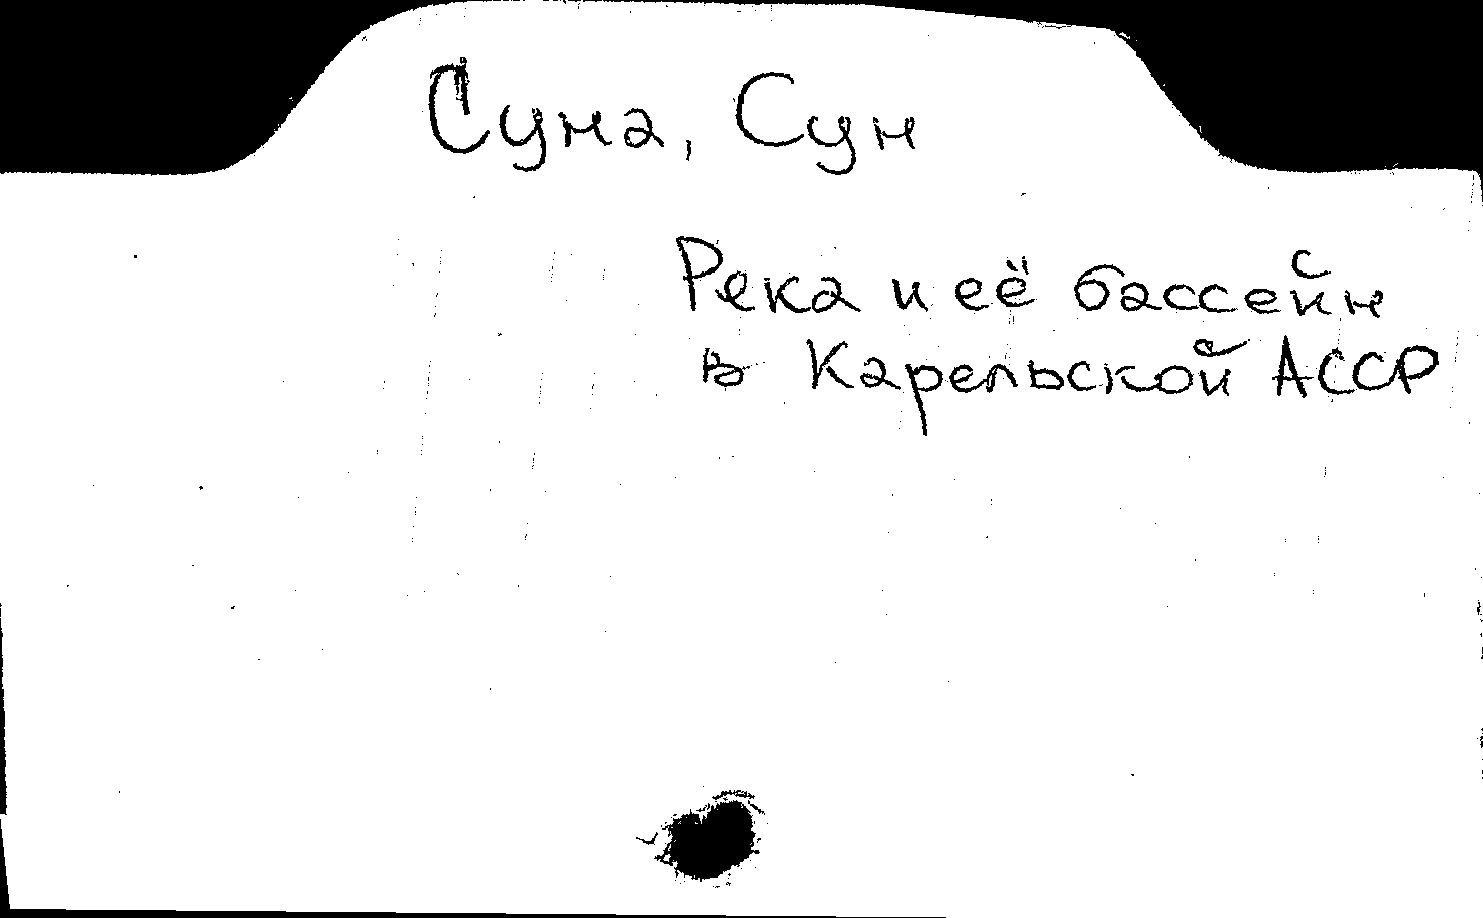 Суна, Сун
Река и её бассейн
в Карельской АССР